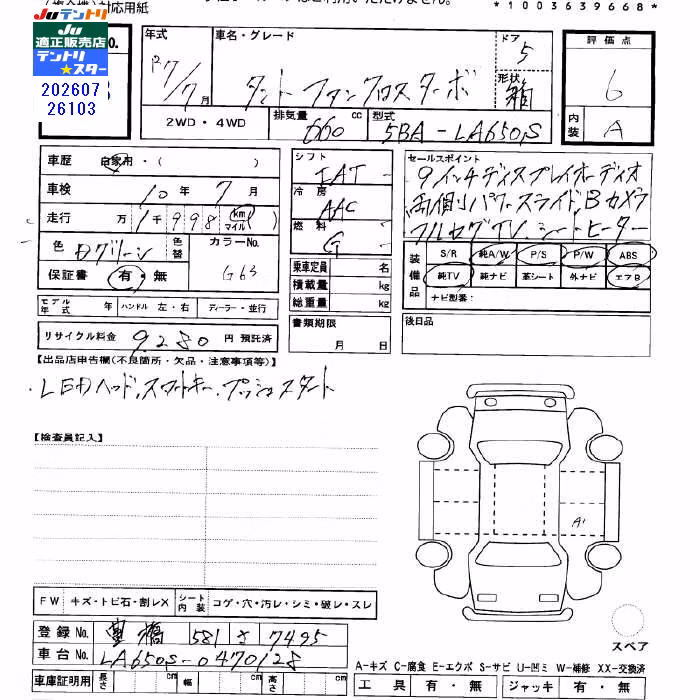 （複合機）対応用紙
*1003639668*
JUテントリ
JU適正販売店
テントリ
★スター
202607
26103
NO.
年式
車名・グレード
ドア
5
評価点
7/7月
タントファンクロスターボ
形状
箱
6
2WD・4WD
排気量
660
cc
型式
5BA-LA650S
内装
A
車歴
自家用・( )
シフト
IAT
セールスポイント
車検
10年7月
冷房
AAC
9インチディスプレイオーディオ
走行
万1千998
km
マイル
両側パワースライドBカメラ
燃料
G
フルセグTVシートヒーター
色
Dグリーン
色替
カラーNo.
G63
保証書
有・無
乗車定員
名
積載量
kg
総重量
kg
装備品
S/R
純A/W
P/S
P/W
ABS
純TV
純ナビ
革シート
外ナビ
エアB
ナビ型番:
モデル年式
年
ハンドル
左・右
ディーラー・並行
書類期限
月
日
後日品
リサイクル料金
9280
円
預託済
【出品店申告欄(不良箇所・欠品・注意事項等)】
・LEDヘッド、スマートキー、プッシュスタート
【検査員記入】
A1
FW
キズ・トビ石・割レX
シート内装
コゲ・穴・汚レ・シミ・破レ・スレ
登録No.
豊橋
581
さ
7495
スペア
車台No.
LA650S-0470128
A-キズ C-腐食 E-エクボ S-サビ U-凹ミ W-補修 XX-交換済
車庫証明用
長さ
cm
幅
cm
高さ
cm
工具
有・無
ジャッキ
有・無